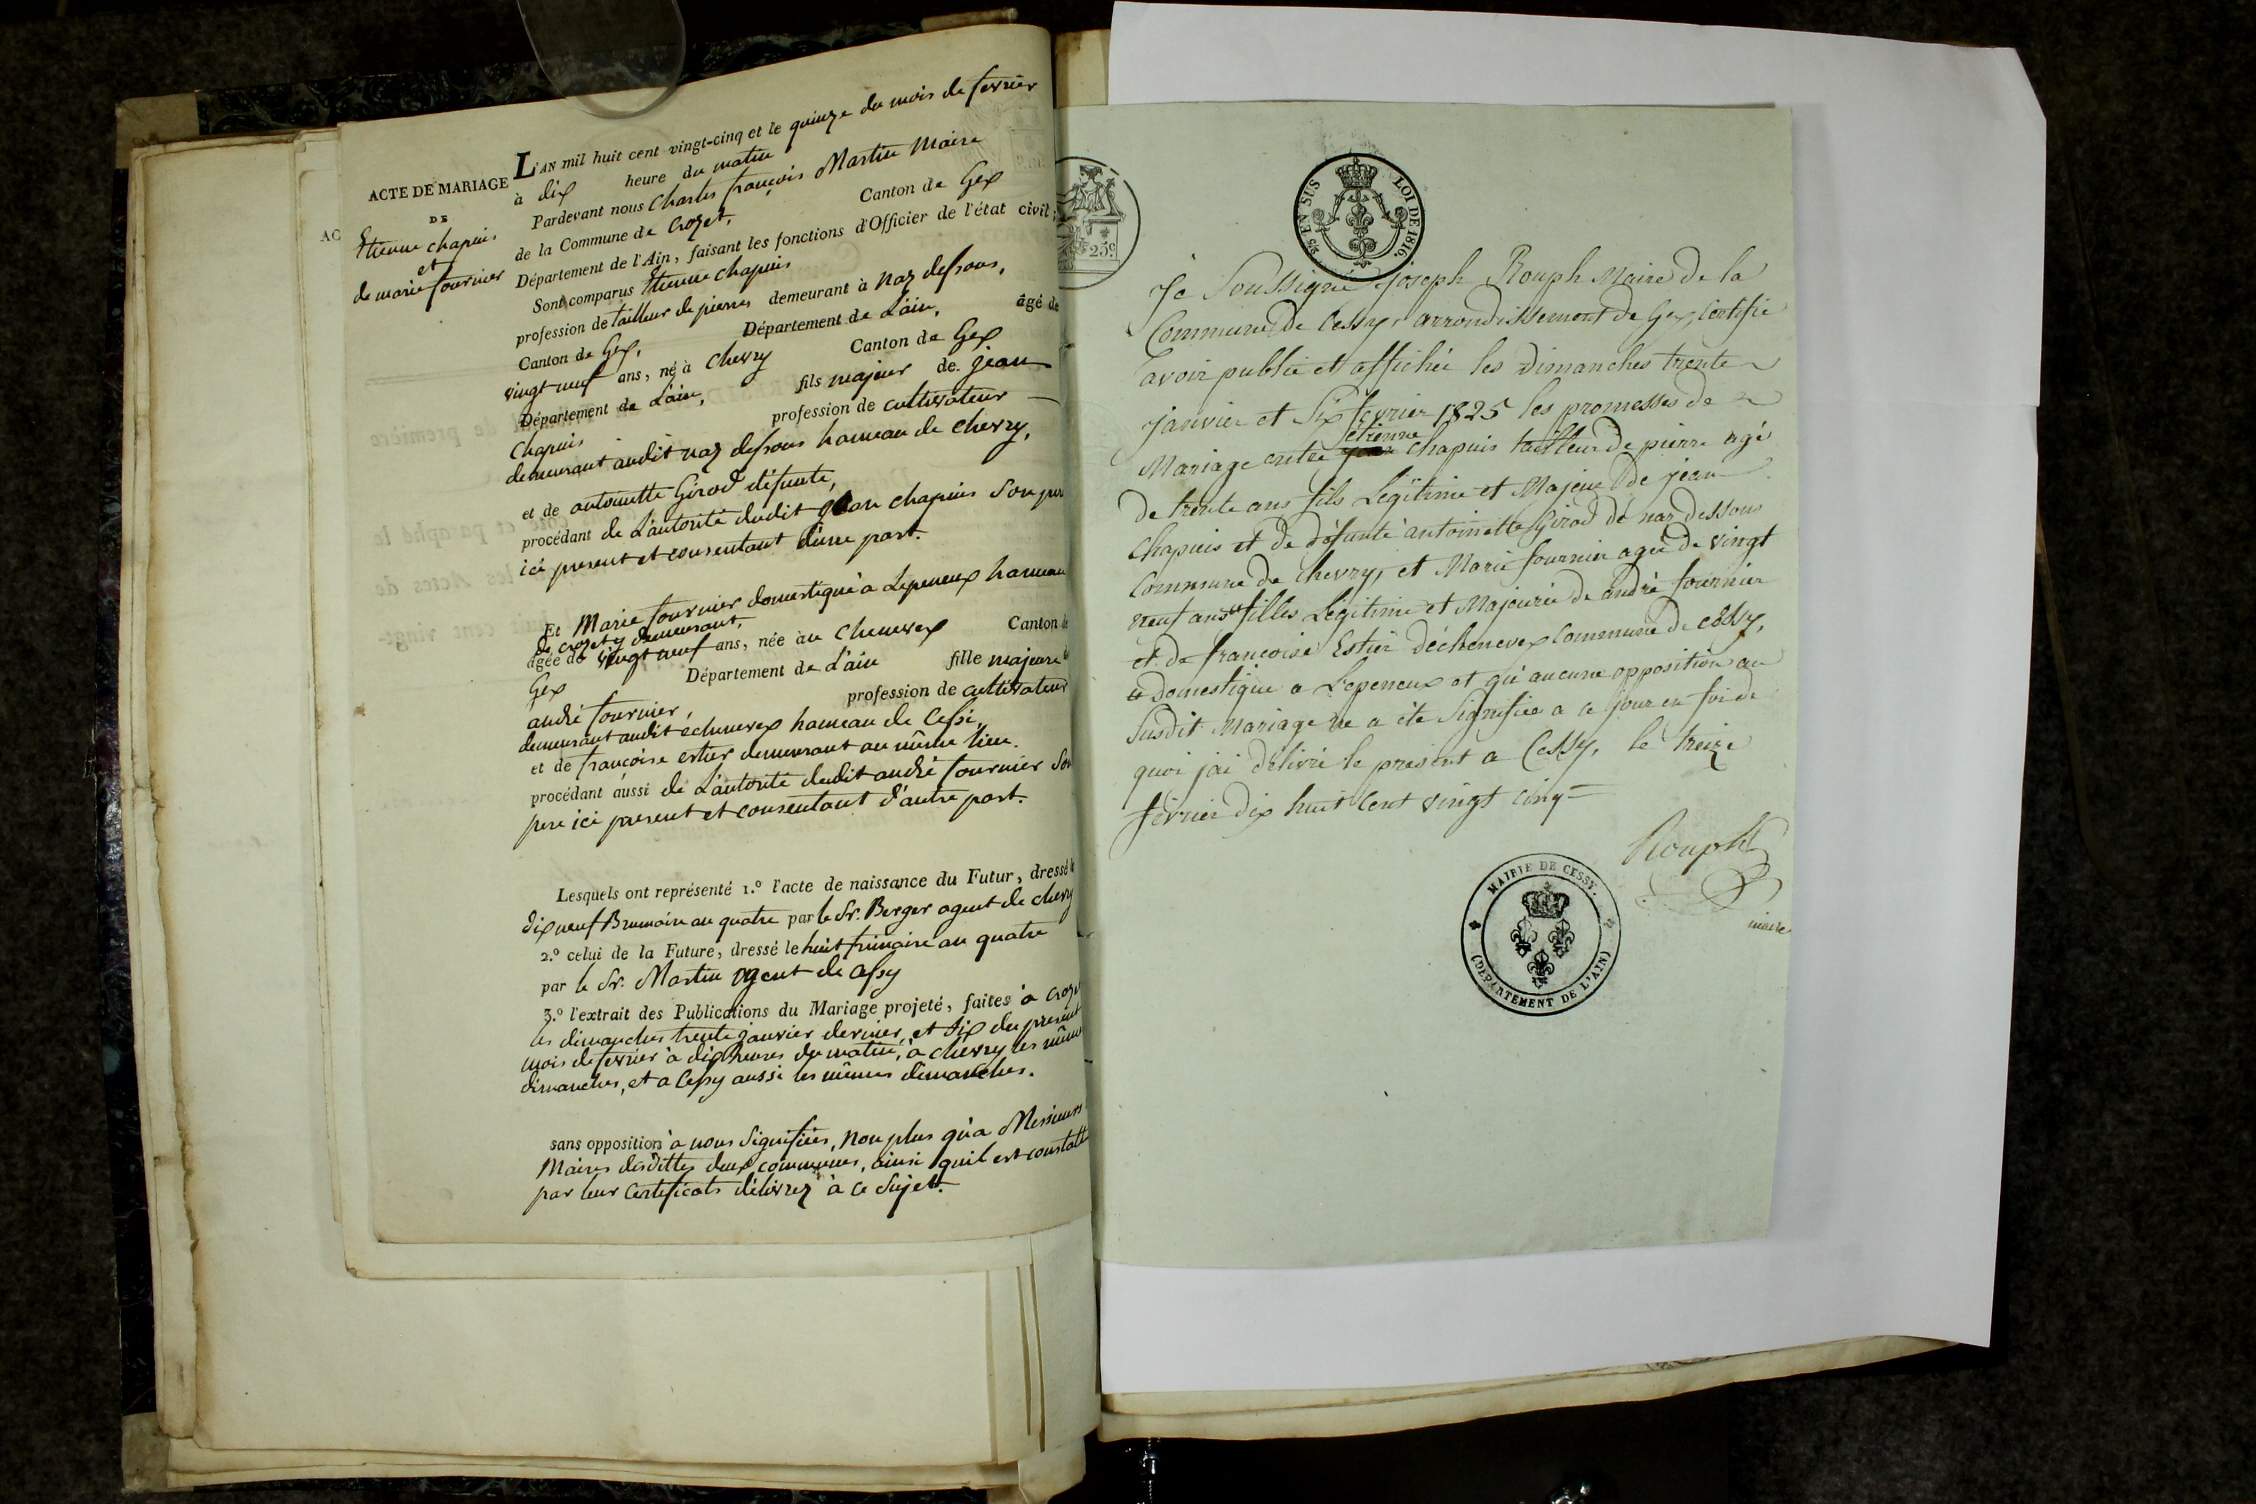 ACTE DE MARIAGE
DE
Etienne chapuis
et
de marie fournier
AC
L'AN mil huit cent vingt-cinq et le quinze du mois de fevrier
à dix heure du matin
Pardevant nous Charles françois Martin Maire
de la Commune de Crozet, Canton de Gex
Département de l'Ain, faisant les fonctions d'Officier de l'état civil;
Sont comparus Etienne chapuis
profession de tailleur de pierres demeurant à naz dessous,
Canton de Gex, Département de L'ain, âgé de
vingt neuf ans, né à chevry Canton de Gex
Département de L'ain, fils majeur de jean
chapuis profession de cultivateur
demeurant audit naz dessous hameau de chevry,
et de antoinette Girod défunte,
procédant de L'autorité dudit jean chapuis son pere
ici present et consentant d'une part.
Et Marie fournier domestique à Lepeneux hameau
de crozet y demeurant,
âgée de vingt neuf ans, née au Chenevex Canton de
Gex Département de L'ain fille majeure de
andré fournier, profession de cultivateur
demeurant audit echenevex hameau de Cessi,
et de françoise estier demeurant au même lieu.
procédant aussi de L'autorité dudit andré fournier son
pere ici present et consentant d'autre part.
Lesquels ont représenté 1.º l'acte de naissance du Futur, dressé le
dix neuf Brumaire an quatre par le Sr. Berger agent de chevry
2.º celui de la Future, dressé le huit frimaire an quatre
par le Sr. Martin agent de Cessy
3.º l'extrait des Publications du Mariage projeté, faites à crozet
les dimanches trente janvier dernier, et six du present
mois de fevrier à dix heures du matin, à chevry les mêmes
dimanches, et a Cessy aussi les mêmes dimanches.
sans opposition à nous signifiées, non plus qu'a Messieurs
Maires desdittes deux communes, ainsi qu'il est constatté
par leur Certificats délivrez à ce sujet.
25 c.
25 EN SUS LOI DE 1816.
Je Soussigné joseph Rouph Maire de la
Commune de Cessy, arrondissement de Gex, Certifie
avoir publié et affichée les dimanches trente
janvier et Six fevrier 1825 les promesses de
etienne
Mariage entre jean chapuis tailleur de pierre agé
de trente ans fils Legitime et Majeur de jean
Chapuis et de défunte antoinette Girod de naz dessous
Commune de Chevry, et Marie fournier agée de vingt
neuf ans filles Legitime et Majeurie de andré fournier
et de francoise Estier déchenevex Commune de cessy,
domestique a Lepeneux et qu'aucune opposition au
Susdit Mariage ne a éte Signifiée a ce jour en foi de
quoi jai délivré le present a Cessy, le treize
fevrier dix huit Cent vingt cinq
Rouph
maire
MAIRIE DE CESSY.
(DÉPARTEMENT DE L'AIN)